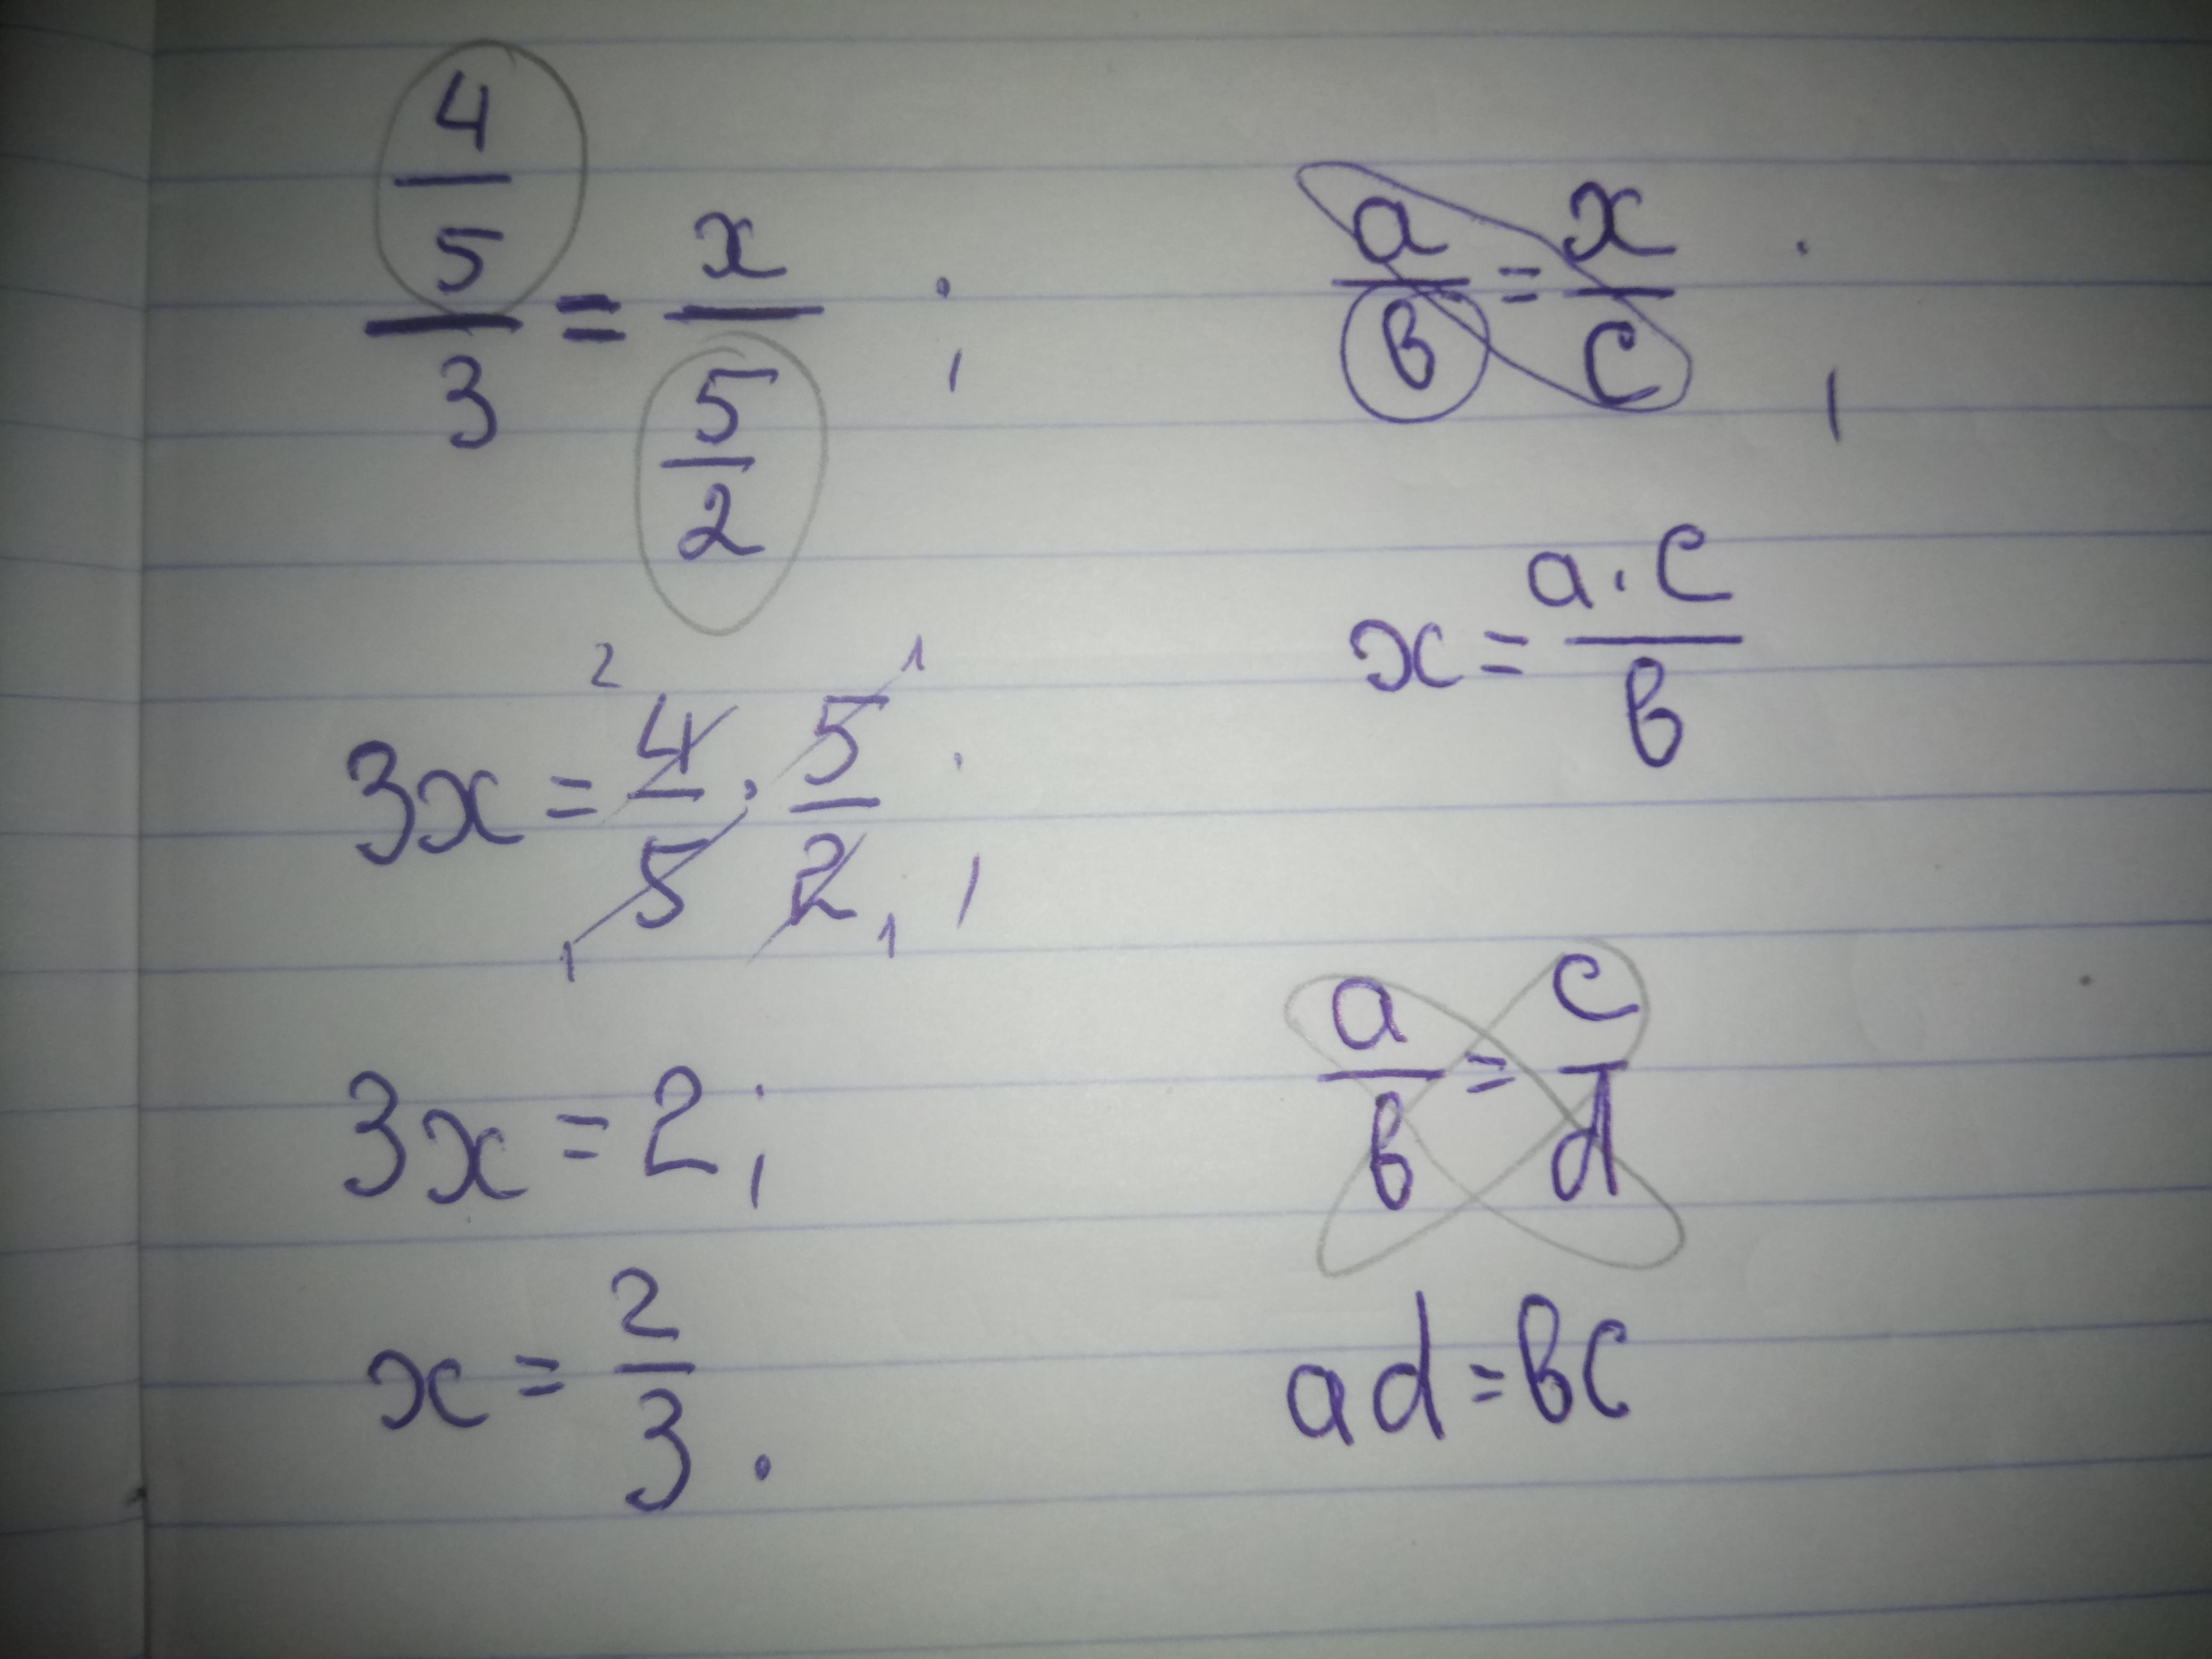 4/5 / 3 = x / 5/2 ;
3x = 4/5 · 5/2 ;
2 1
1 1
3x = 2;
x = 2/3.
a/в = x/c ;
x = a·c/в
a/в = c/d
ad = вc